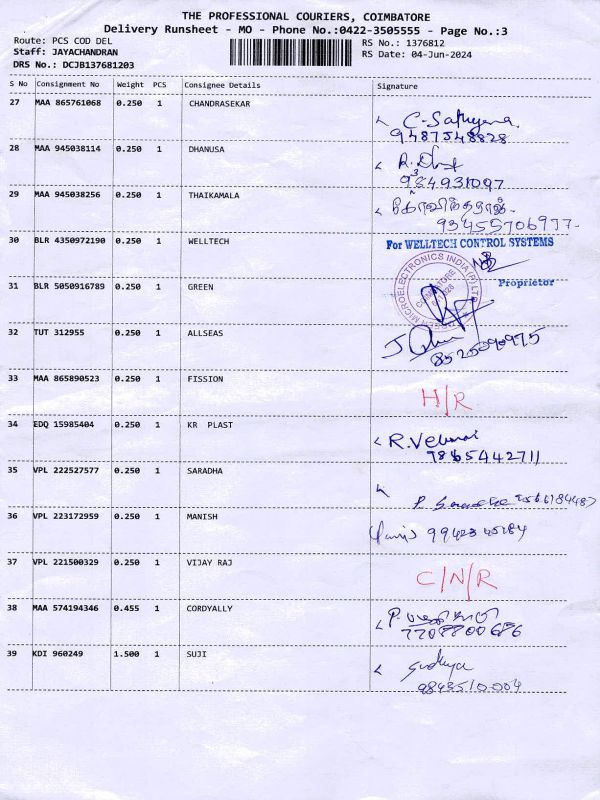 THE PROFESSIONAL COURIERS, COIMBATORE
Delivery Runsheet - MO - Phone No.:0422-3505555 - Page No.:3
Route: PCS COD DEL RS No.: 1376812
Staff: JAYACHANDRAN RS Date: 04-Jun-2024
DRS No.: DCJB137681203
S No Consignment No Weight PCS Consignee Details Signature
27 MAA 865761068 0.250 1 CHANDRASEKAR C-Sathyena
9487548828
28 MAA 945038114 0.250 1 DHANUSA
984931097
29 MAA 945038256 0.250 1 THAIKAMALA கோவிந்தராஜ்
93455706977-
30 BLR 4350972190 0.250 1 WELLTECH For WELLTECH CONTROL SYSTEMS
Proprietor
31 BLR 5050916789 0.250 1 GREEN MICROELECTRONICS INDIA (P) LTD COIMBATORE
32 TUT 312955 0.250 1 ALLSEAS
8525090975
33 MAA 865890523 0.250 1 FISSION H/R
34 EDQ 15985404 0.250 1 KR PLAST R.Velumai
7865442711
35 VPL 222527577 0.250 1 SARADHA
36 VPL 223172959 0.250 1 MANISH 9942345184
37 VPL 221500329 0.250 1 VIJAY RAJ C/N/R
38 MAA 574194346 0.455 1 CORDYALLY
7708800686
39 KDI 960249 1.500 1 SUJI Sudhya
9843510004